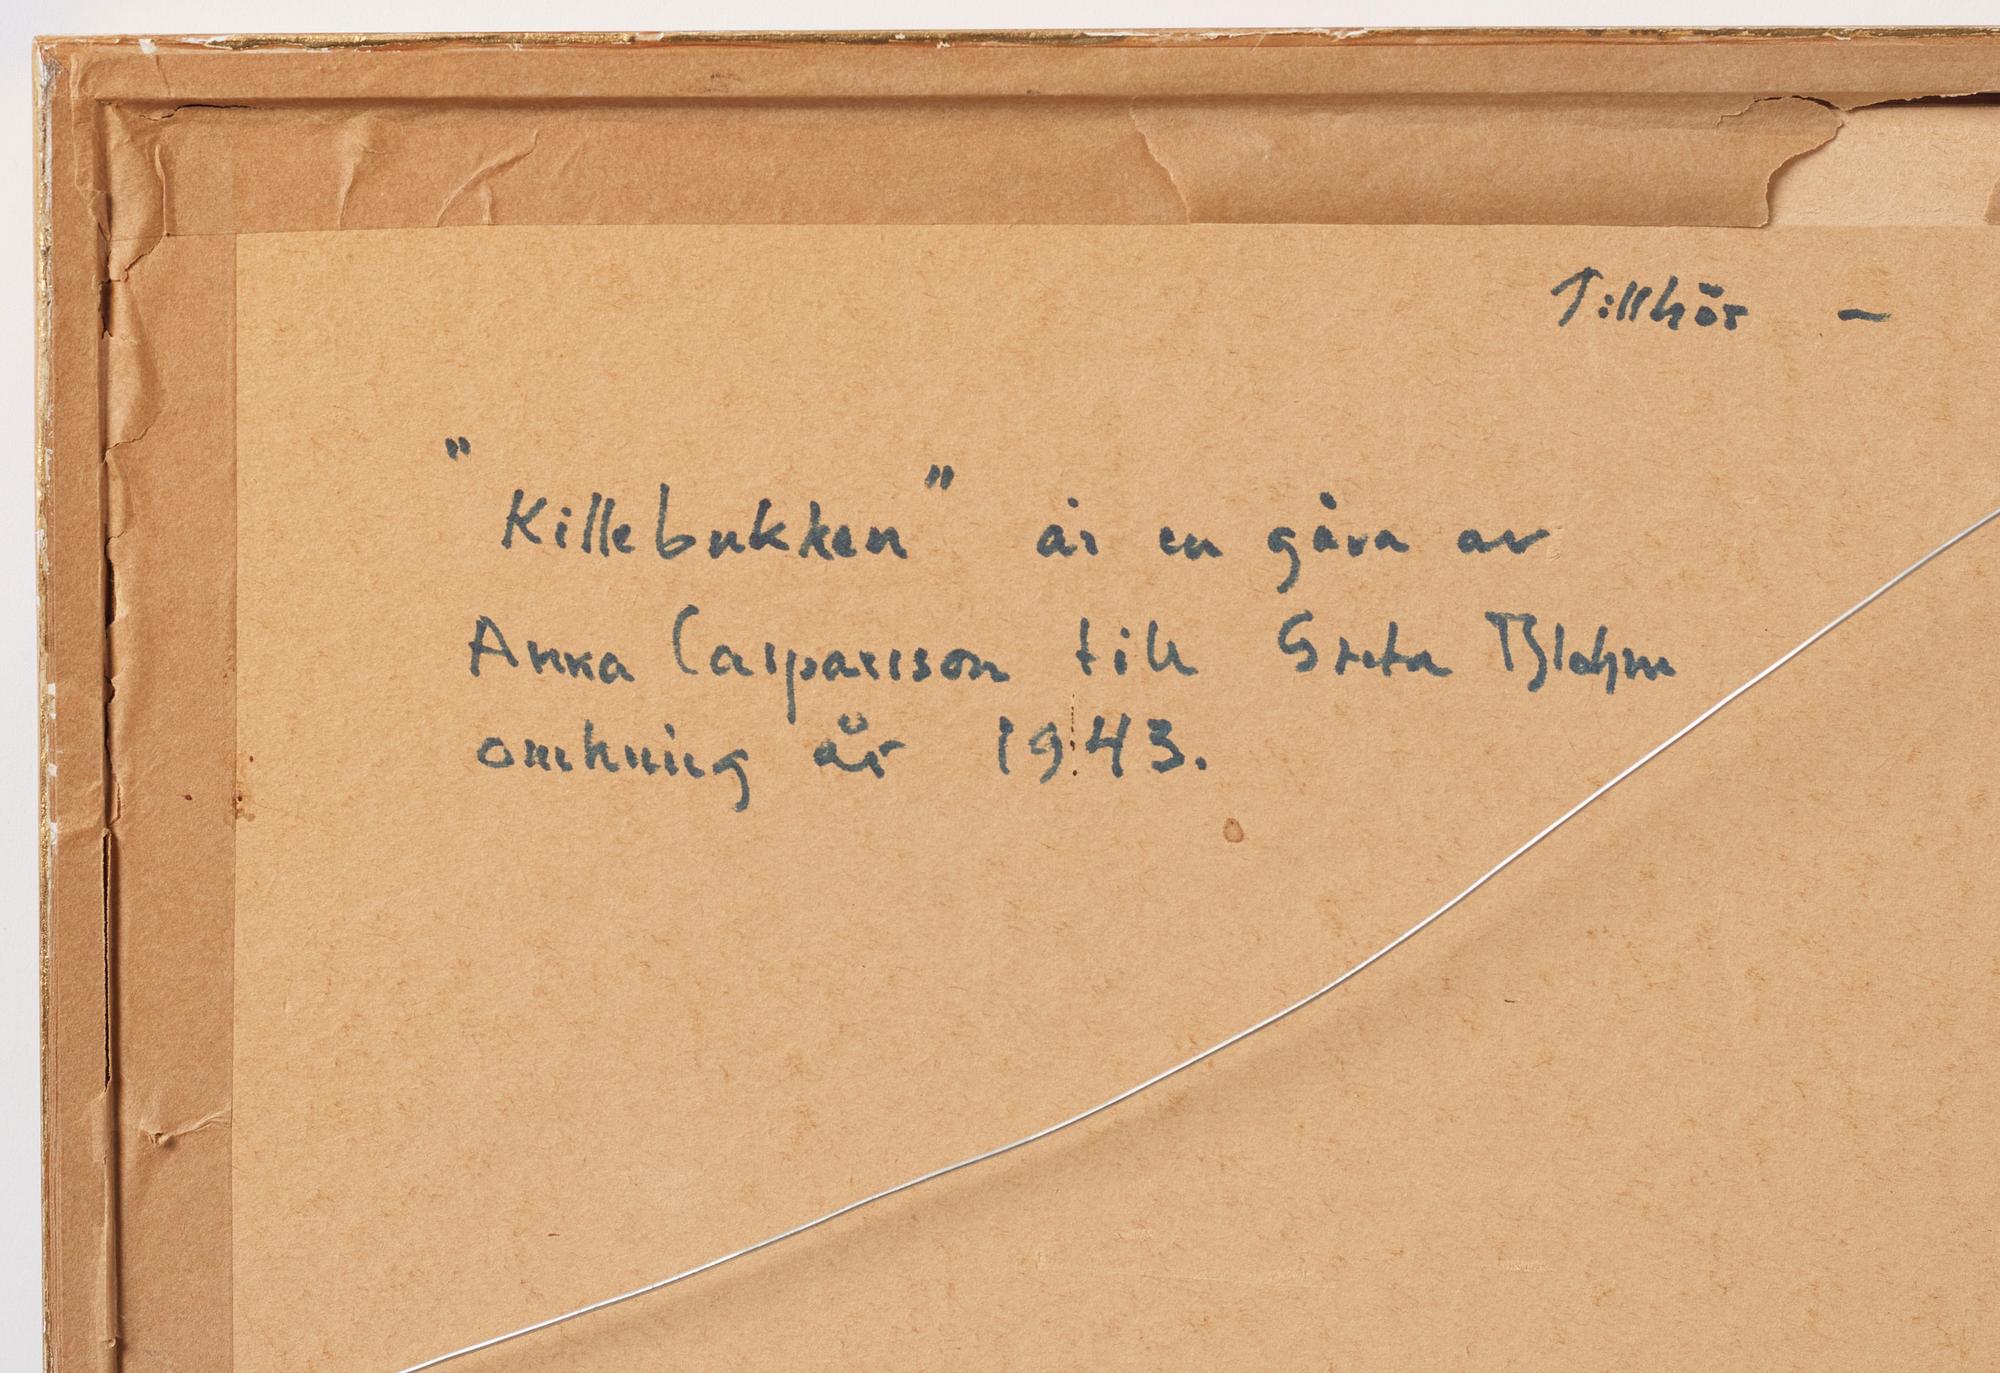 Tillhör —
"Killebukken" är en gåva av
Anna Casparsson till Greta Blohm
omkring år 1943.